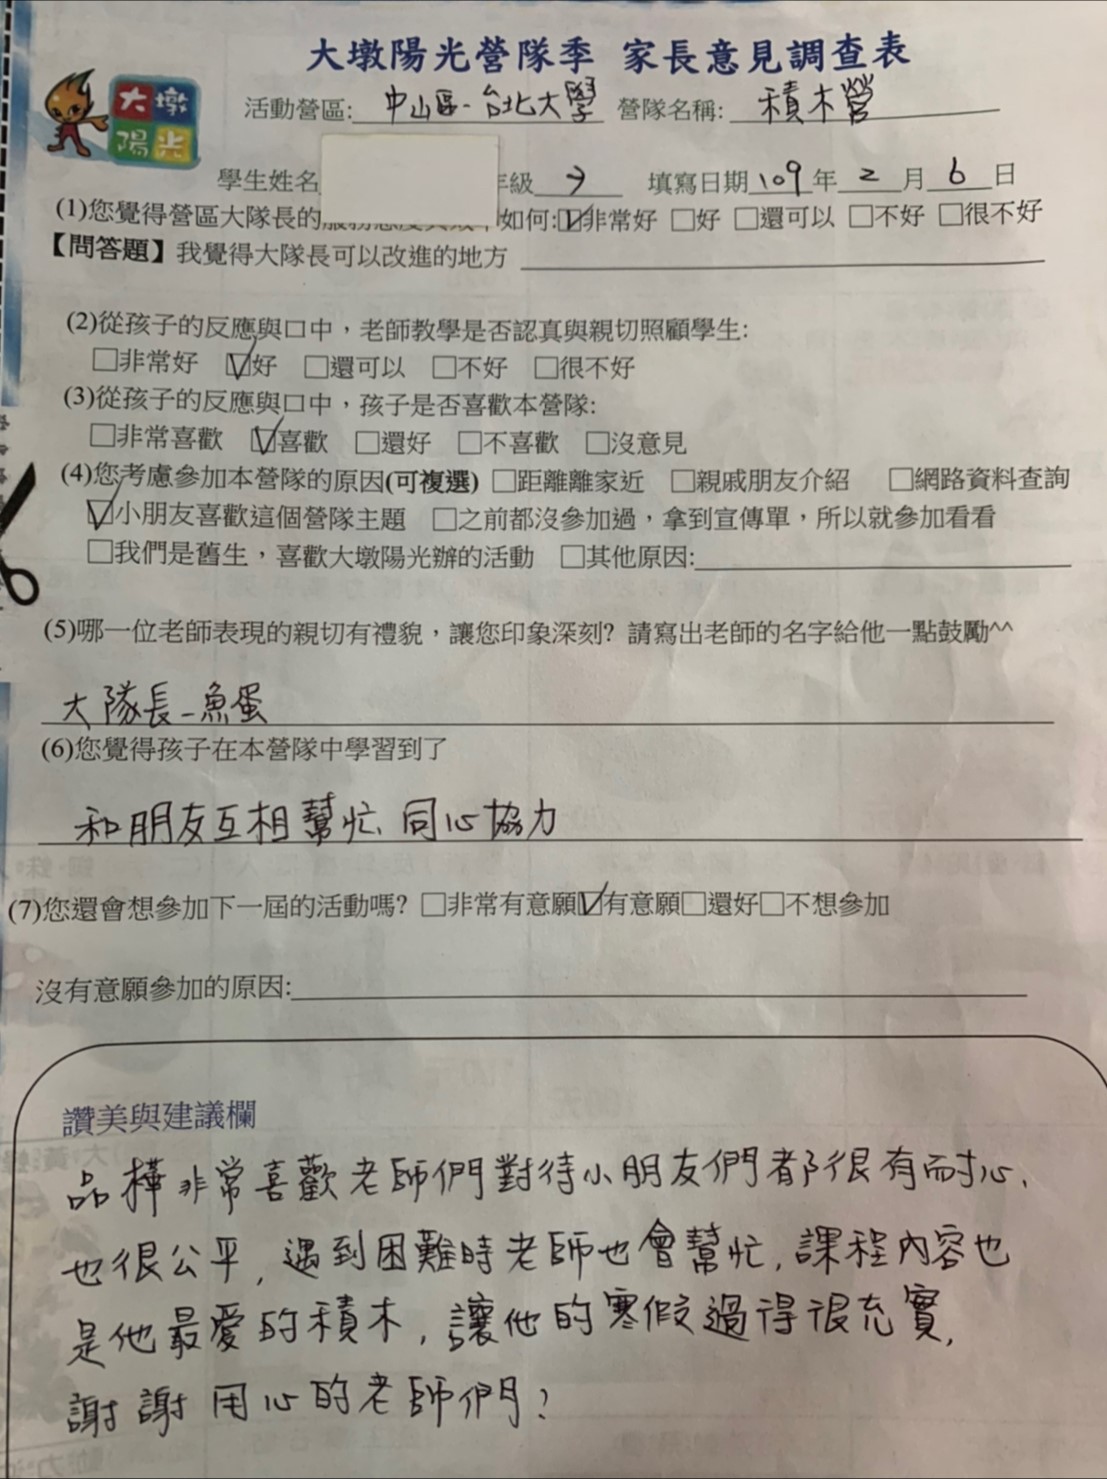 大墩陽光營隊季 家長意見調查表
大墩
陽光
活動營區: 中山區-台北大學 營隊名稱: 積木營
學生姓名 年級 填寫日期 109 年 2 月 6 日
(1)您覺得營區大隊長的 如何:☑非常好 □好 □還可以 □不好 □很不好
【問答題】我覺得大隊長可以改進的地方
(2)從孩子的反應與口中，老師教學是否認真與親切照顧學生:
□非常好 ☑好 □還可以 □不好 □很不好
(3)從孩子的反應與口中，孩子是否喜歡本營隊:
□非常喜歡 ☑喜歡 □還好 □不喜歡 □沒意見
(4)您考慮參加本營隊的原因(可複選) □距離離家近 □親戚朋友介紹 □網路資料查詢
☑小朋友喜歡這個營隊主題 □之前都沒參加過，拿到宣傳單，所以就參加看看
□我們是舊生，喜歡大墩陽光辦的活動 □其他原因:
(5)哪一位老師表現的親切有禮貌，讓您印象深刻? 請寫出老師的名字給他一點鼓勵^^
大隊長-魚蛋
(6)您覺得孩子在本營隊中學習到了
和朋友互相幫忙、同心協力
(7)您還會想參加下一屆的活動嗎? □非常有意願☑有意願□還好□不想參加
沒有意願參加的原因:
讚美與建議欄
品樺非常喜歡老師們對待小朋友們都很有耐心、
也很公平, 遇到困難時老師也會幫忙, 課程內容也
是他最愛的積木, 讓他的寒假過得很充實,
謝謝用心的老師們?